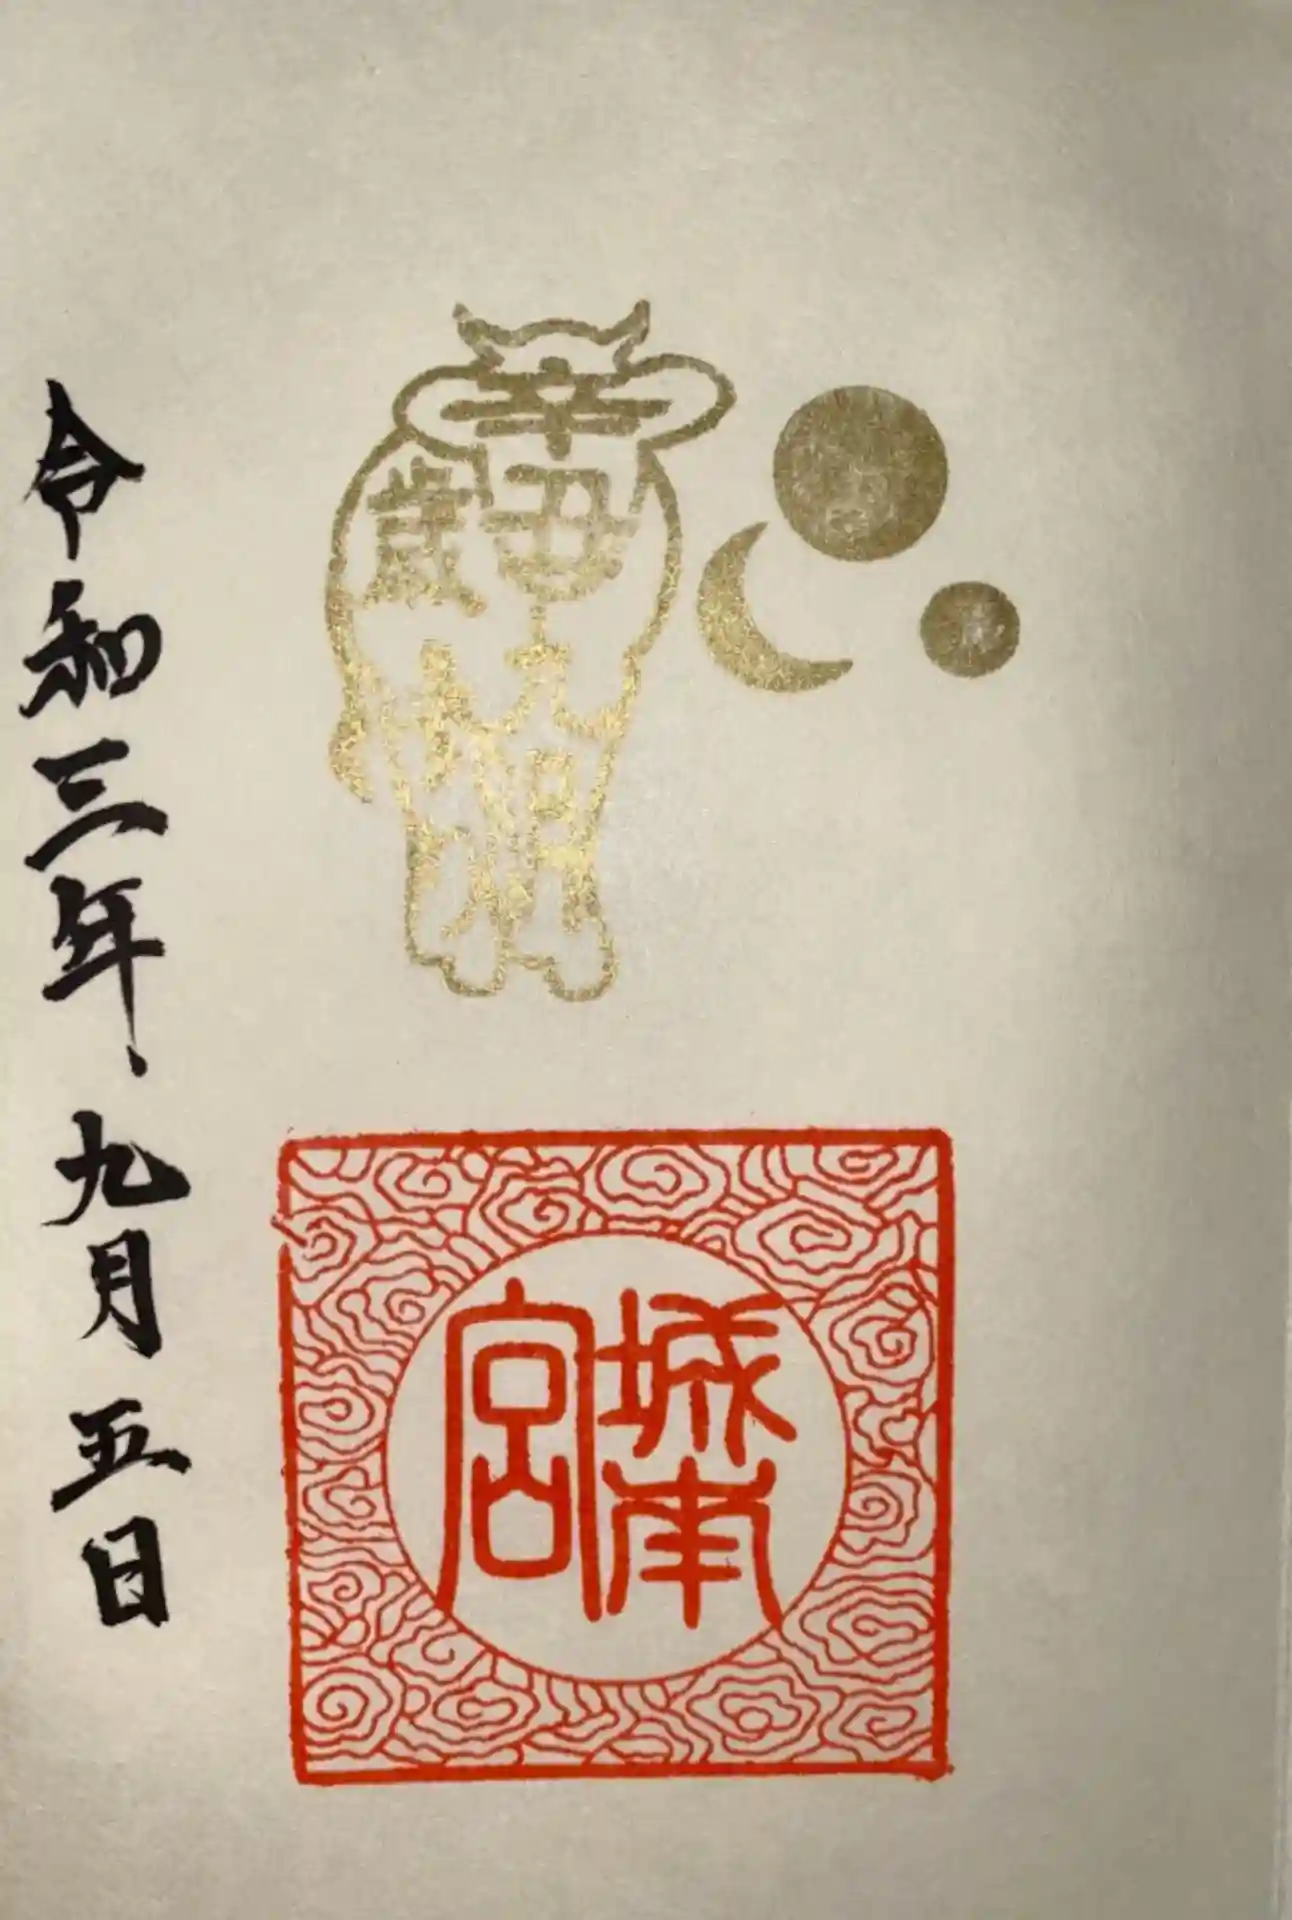 辛丑
歳
城南
宮
令和三年九月五日